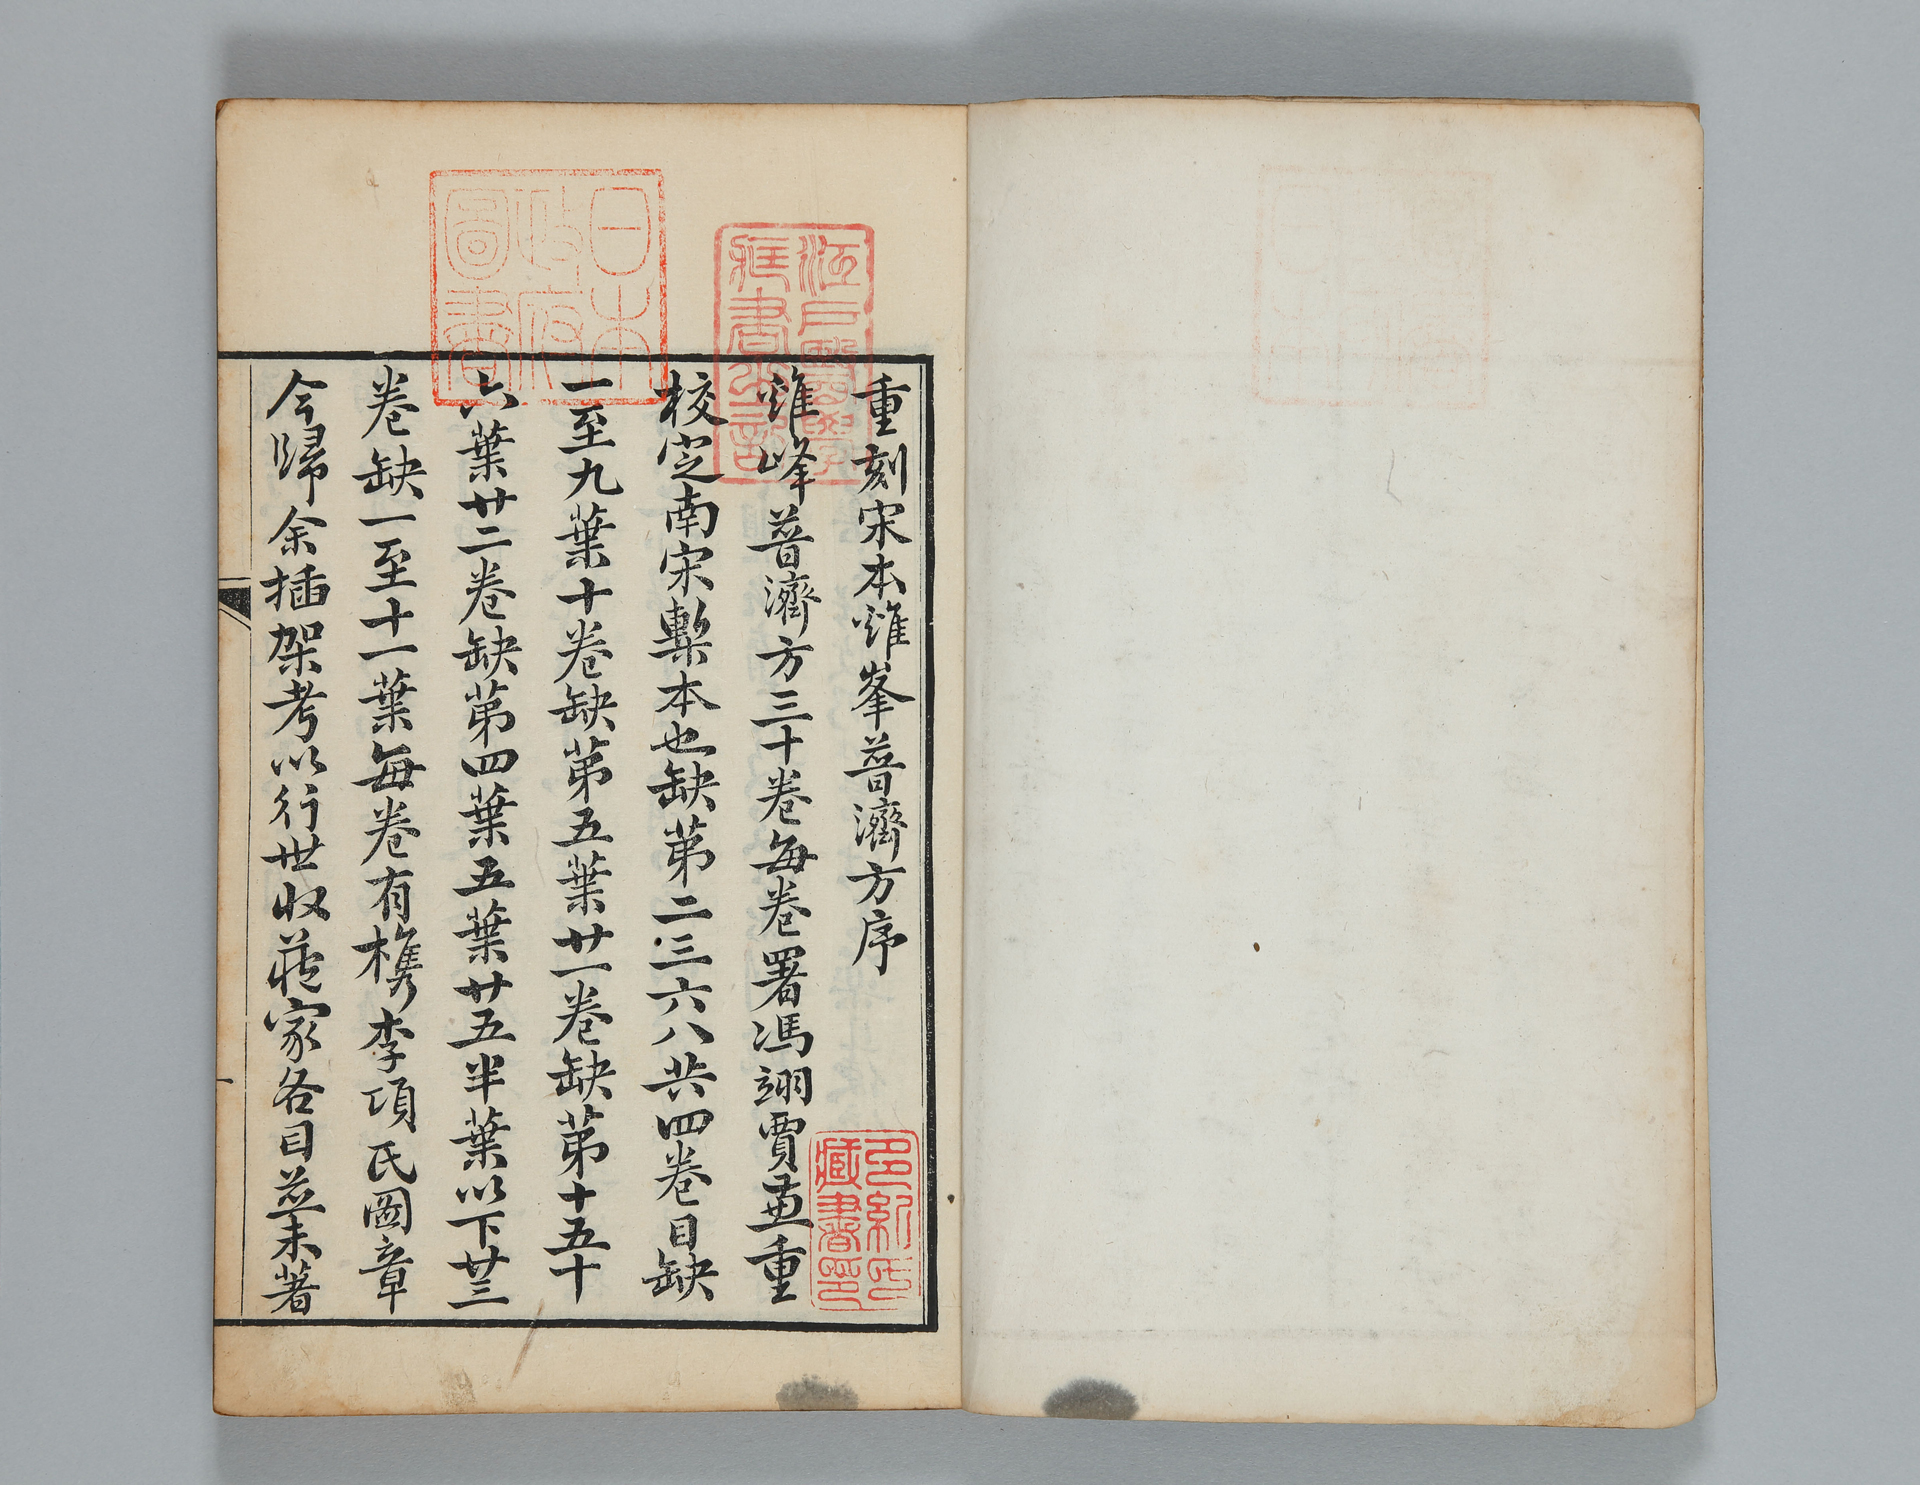 重刻宋本雞峯普濟方序
雞峰普濟方三十卷每卷署馮翊賈兼重
校定南宋槧本也缺苐二三六八共四卷目缺
一至九葉十卷缺苐五葉廿一卷缺苐十五十
六葉廿二卷缺苐四葉五葉廿五半葉以下廿三
卷缺一至十一葉每卷有檇李項氏圖章
今歸余插架考以行世收蔵家各目並未著
日本
政府
圖書
江戶醫學
藏書之記
多紀氏
藏書印